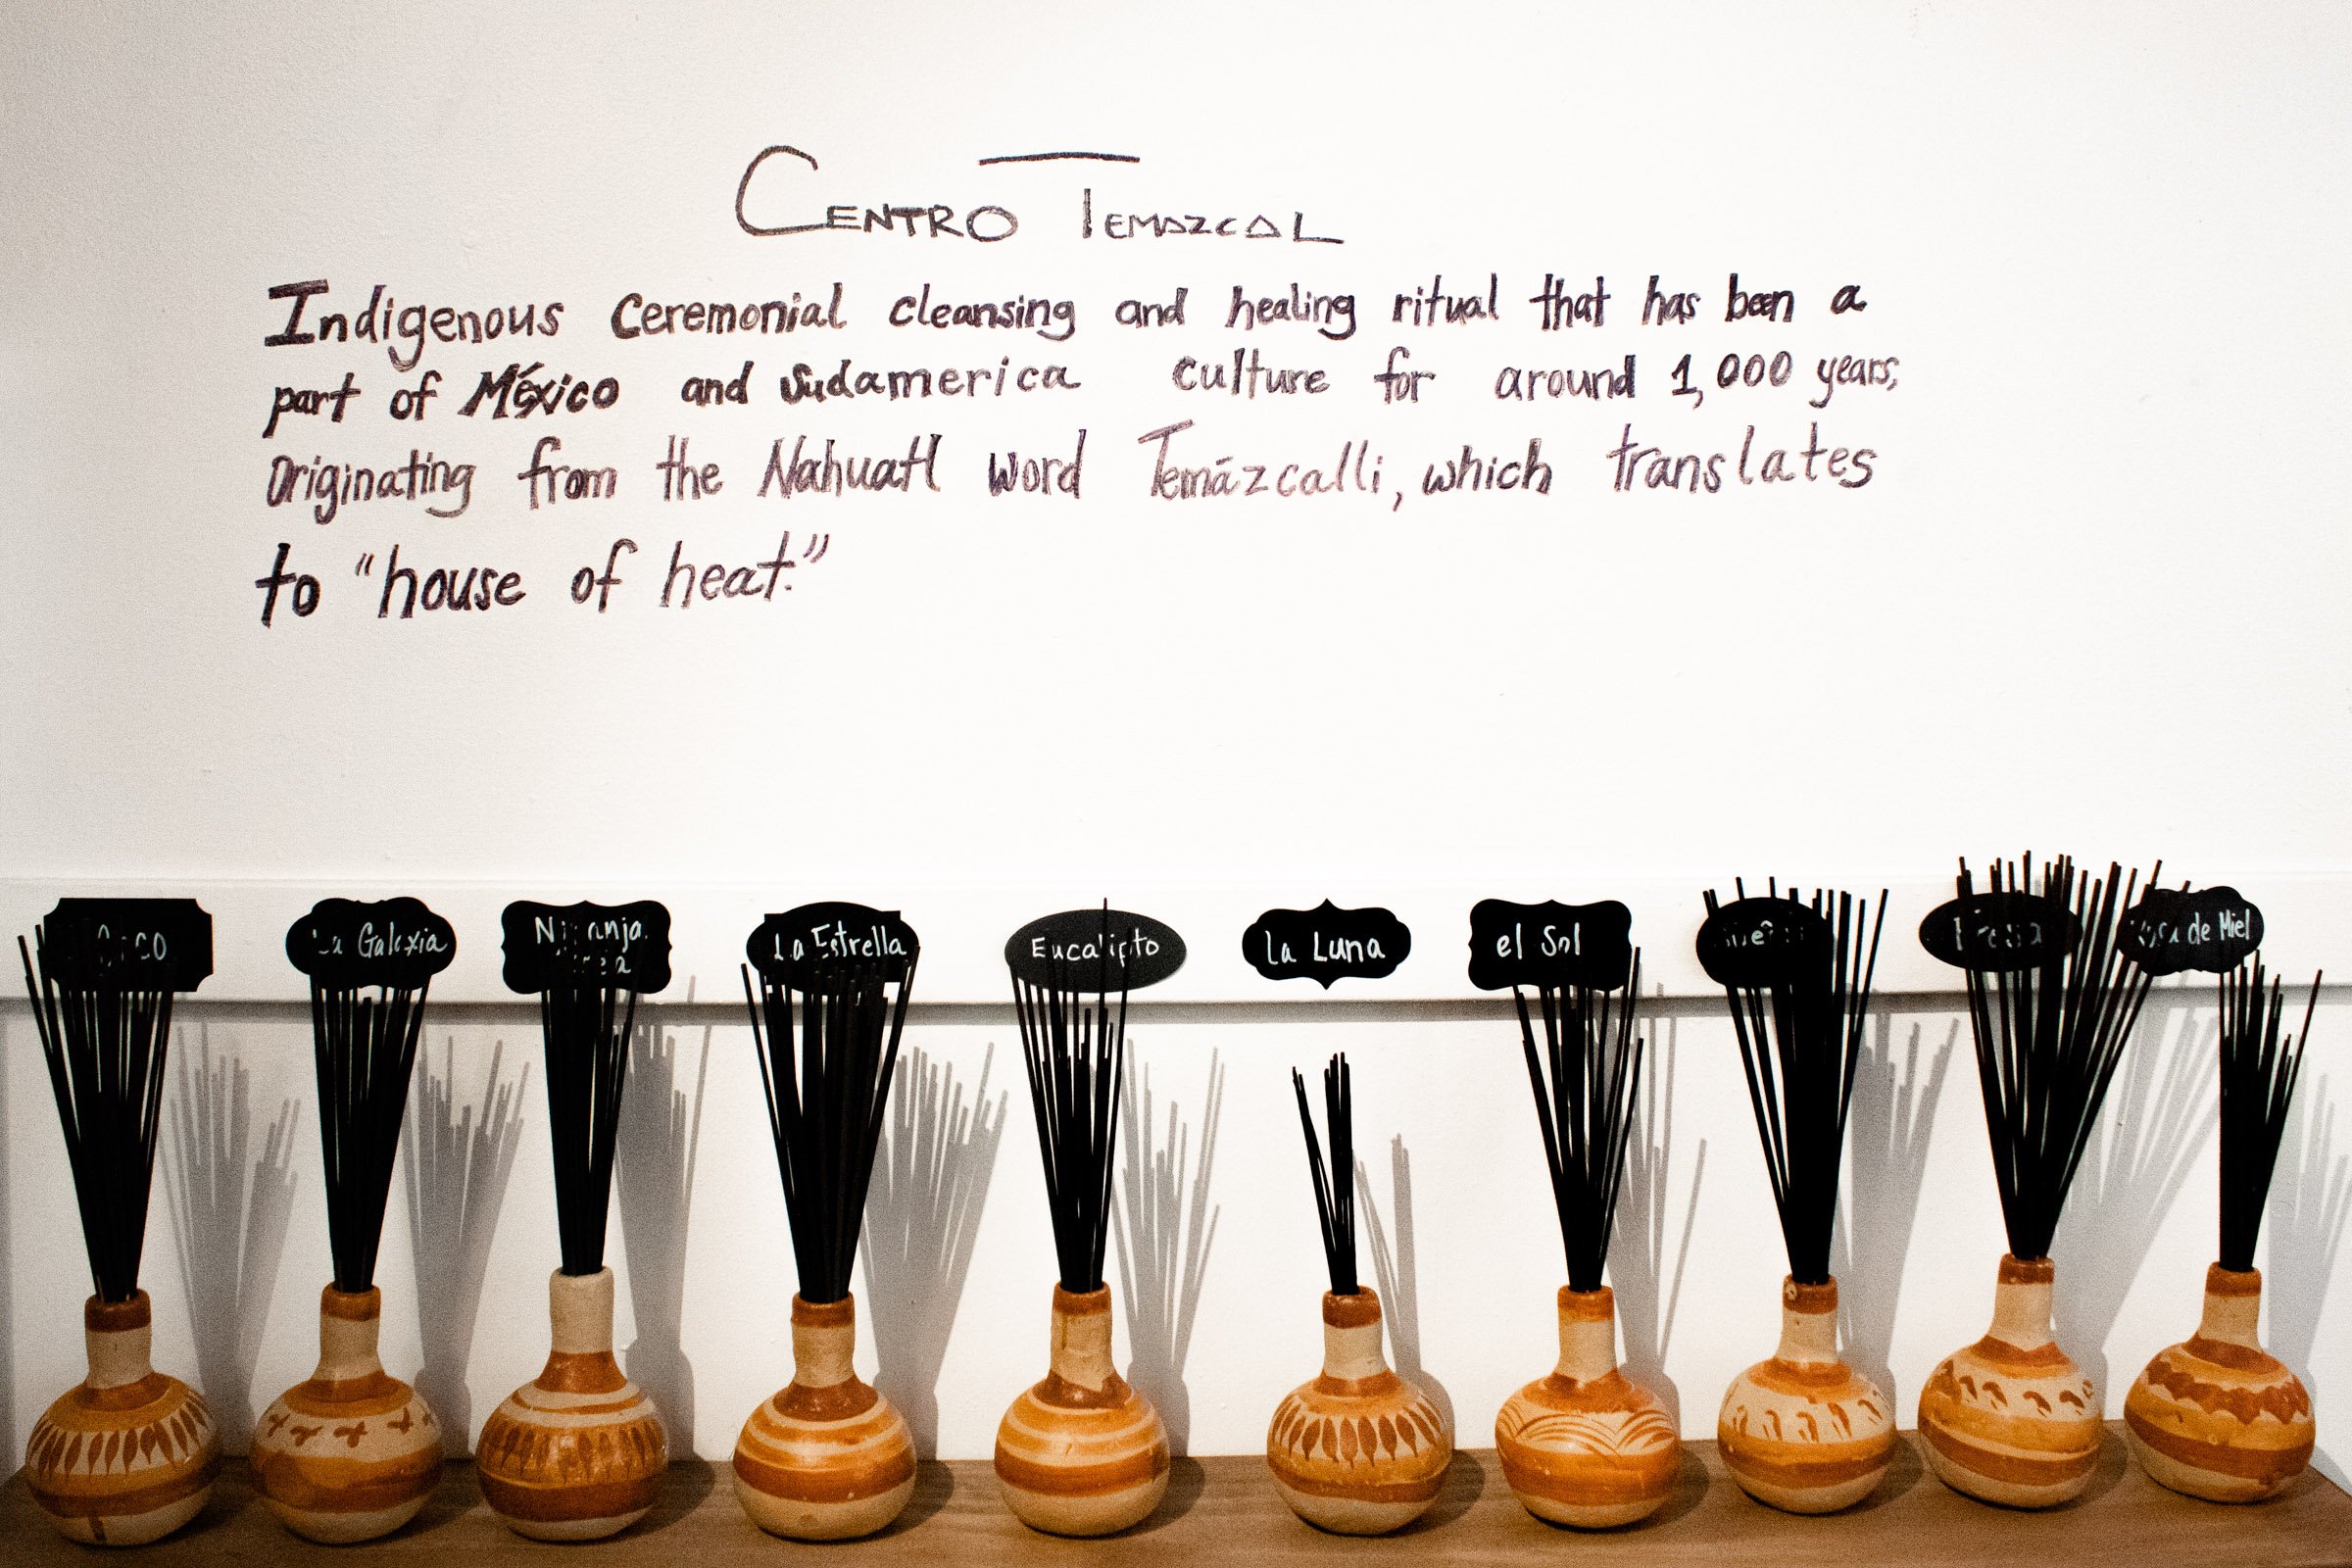 CENTRO TEMAZCAL
Indigenous Ceremonial cleansing and healing ritual that has been a
part of México and Sudamerica culture for around 1,000 years,
Originating from the Nahuatl word Temázcalli, which translates
to "house of heat."
Coco
La Galaxia
Naranja
La Estrella
Eucalipto
la Luna
el Sol
de Miel